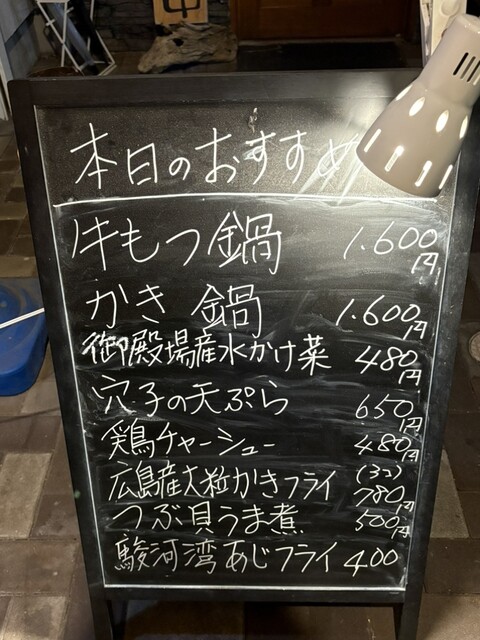 本日のおすすめ
牛もつ鍋 1.600円
かき鍋 1.600円
御殿場産水かけ菜 480円
穴子の天ぷら 650円
鶏チャーシュー 480円
広島産大粒かきフライ (3コ) 780円
つぶ貝うま煮 500円
駿河湾あじフライ 400